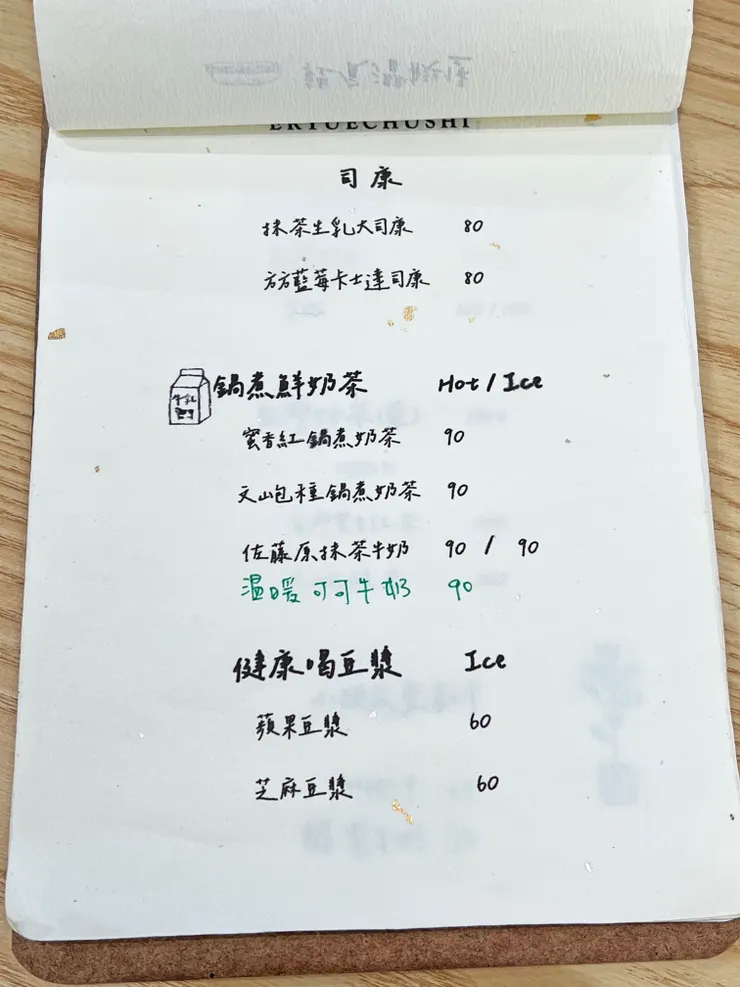 ERYUECHUSHI
司康
抹茶生乳大司康 80
方方藍莓卡士達司康 80
鍋煮鮮奶茶 Hot / Ice
牛乳
蜜香紅鍋煮奶茶 90
文山包種鍋煮奶茶 90
佐藤原抹茶牛奶 90 / 90
溫暖可可牛奶 90
健康喝豆漿 Ice
蘋果豆漿 60
芝麻豆漿 60